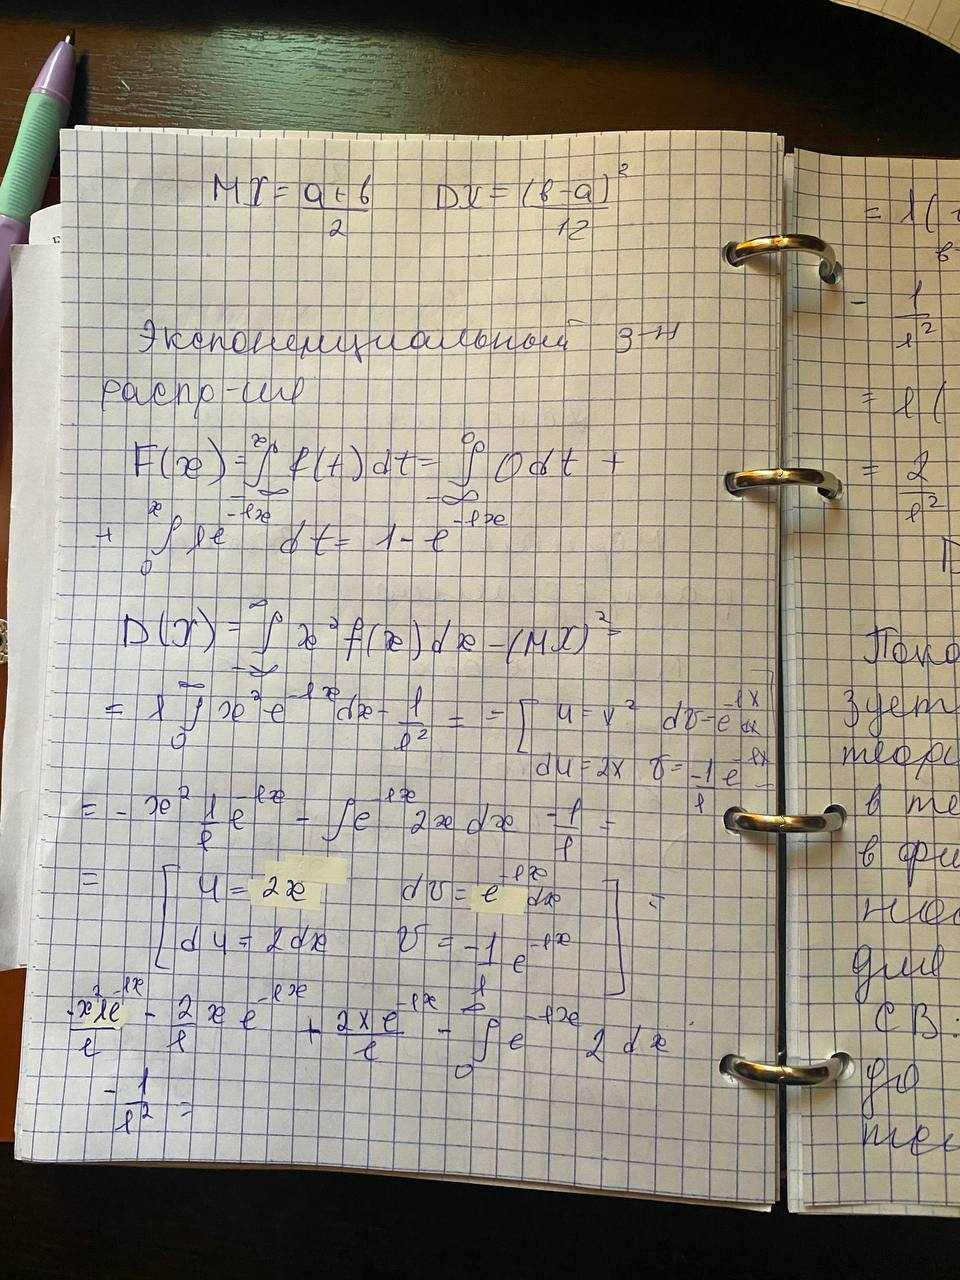 MX = a+b/2 DX = (b-a)²/12
Экспоненциальный з-н
распр-ия
F(x) = ∫_{-∞}^{x} f(t) dt = ∫_{-∞}^{0} 0 dt +
+ ∫_0^x le^{-lx} dt = 1 - e^{-lx}
D(X) = ∫_{-∞}^{∞} x² f(x) dx - (MX)² =
= l ∫_0^∞ x² e^{-lx} dx - 1/l² = = [ u = v² dv = e^{-lx} dx
du = 2x v = -1/l e^{-lx} =
= - x² 1/l e^{-lx} - ∫ e^{-lx} 2x dx - 1/l =
= [ u = 2x dv = e^{-lx} dx ] =
du = 2dx v = -1/l e^{-lx}
-x² le^{-lx}/l - 2/l x e^{-lx} + 2x e^{-lx}/l - ∫_0^∞ e^{-lx} 2 dx
- 1/l² =
= l(
- 1/l²
= l (
= 2/l²
в те
в фи
для
СВ:
до